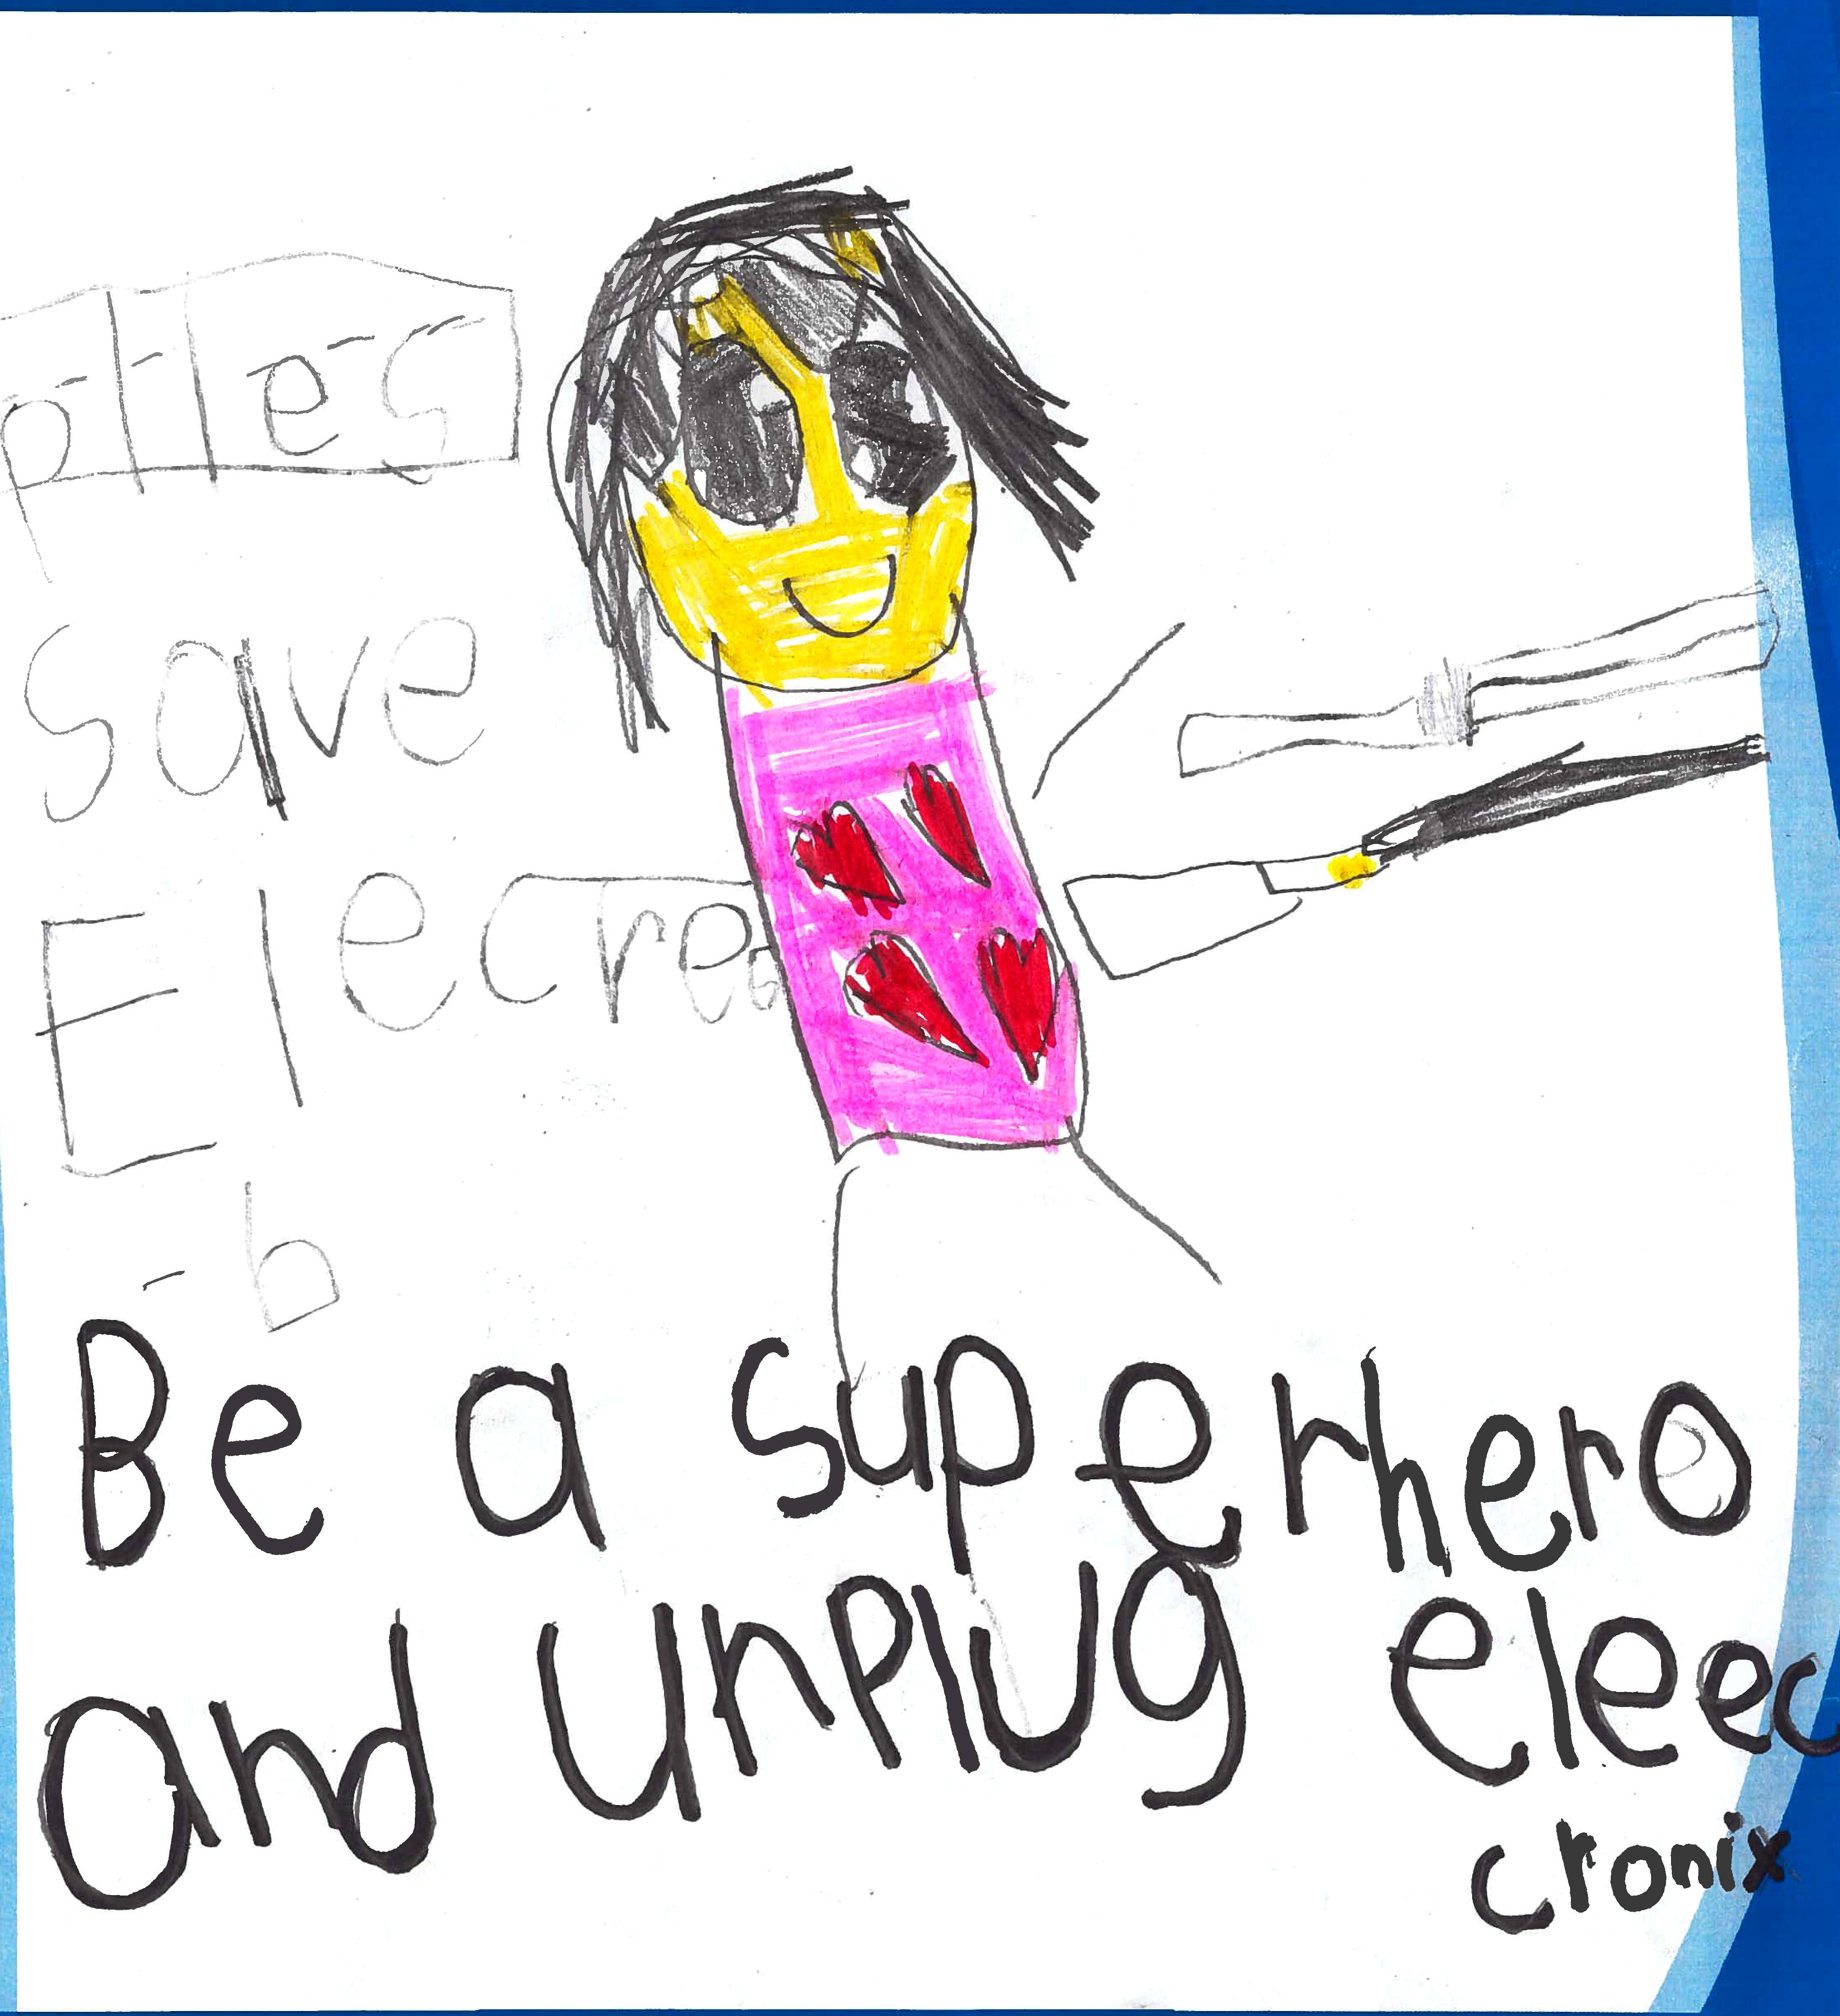 plles
save
b
Be a superhero
and unplug eleec
cronix